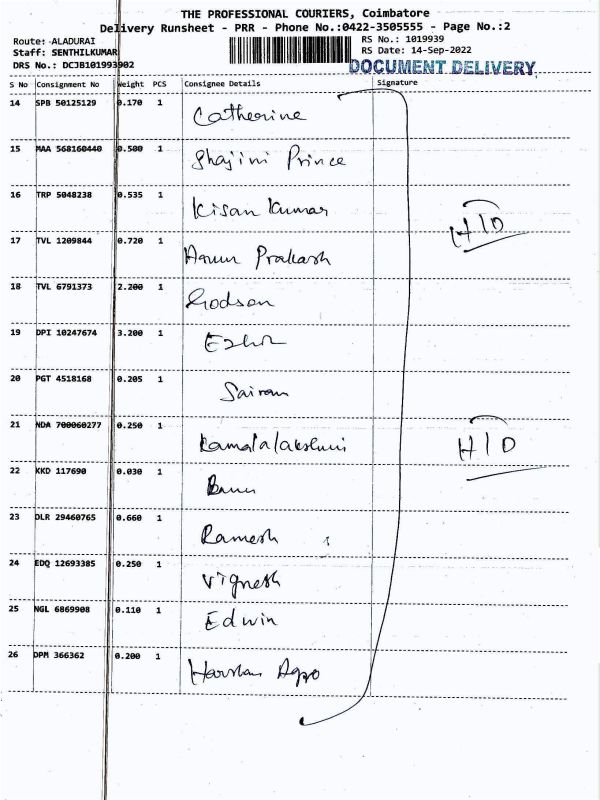 THE PROFESSIONAL COURIERS, Coimbatore
Delivery Runsheet - PRR - Phone No.:0422-3505555 - Page No.:2
Route: ALADURAI
RS No.: 1019939
Staff: SENTHILKUMAR
RS Date: 14-Sep-2022
DRS No.: DCJB101993902
DOCUMENT DELIVERY
S No Consignment No Weight PCS Consignee Details Signature
14 SPB 50125129 0.170 1 Catherine
15 MAA 568160440 0.500 1 Shajini Prince
16 TRP 5048238 0.535 1 Kisan Kumar
H/O
17 TVL 1209844 0.720 1 Arun Prakash
18 TVL 6791373 2.200 1 Godson
19 DPI 10247674 3.200 1
20 PGT 4518168 0.205 1 Sairam
21 NDA 700060277 0.250 1 Kamalalakshmi H/O
22 KKD 117690 0.030 1
23 DLR 29460765 0.660 1 Ramesh
24 EDQ 12693385 0.250 1 Vignesh
25 NGL 6869908 0.110 1 Edwin
26 DPM 366362 0.200 1 Agro